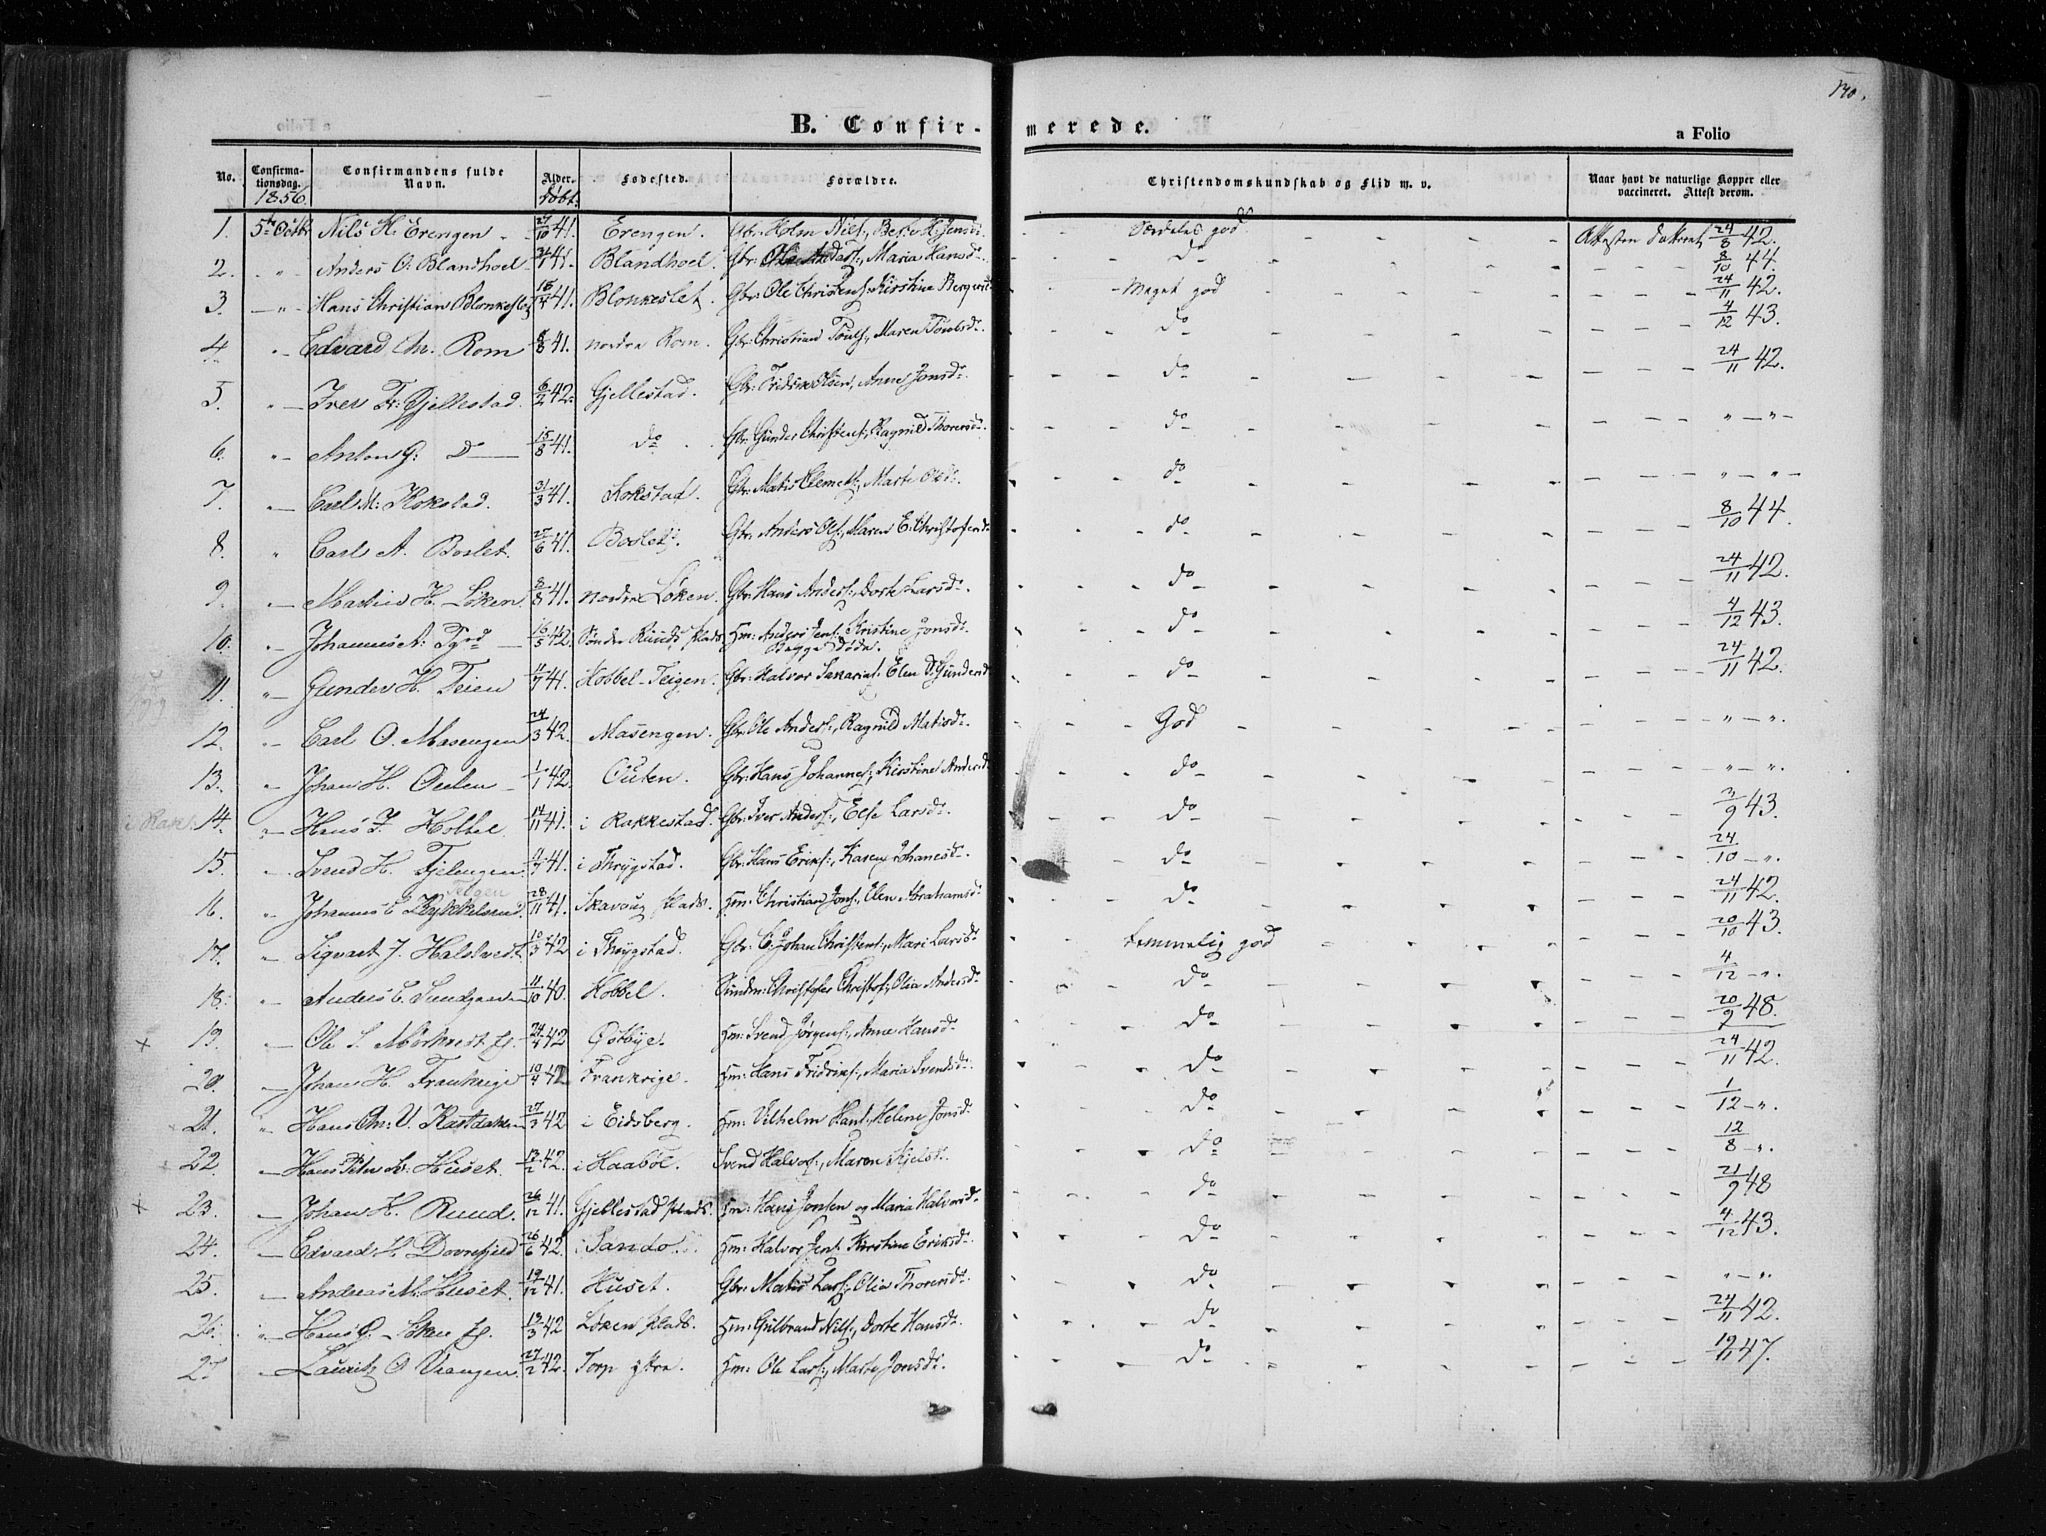 140.
B. Confir-
merede.
a Folio
No.
Confirma-
tionsdag.
1856.
Confirmandens fulde
Navn.
Alder.
Født.
Fødested.
Forældre.
Christendomskundskab og Flid m. v.
Naar havt de naturlige Kopper eller
vaccineret. Attest derom.
1. 5te Octbr Nils H. Erengen 27/10 41. Erengen. Gbr: Holm Nils:, H. Jensd: Særdeles god Attesten Datteret 24/8 42.
2. " Anders O. Blandhoel 41. Blandhoel. Gbr: Ole Maria Hansd: do 8/10 44.
3. " Hans Christian Blonkeslet 16/4 41. Blonkeslet. Gbr: Ole Christens: Kirstine Meget god 24/11 42.
4. " Edvard Chr: Rom 8/8 41. nordre Rom. Gbr: Christian Maren do 4/12 43.
5. " Iver Fr: Gjellestad. 6/2 42. Gjellestad. Gbr: Fridrik Olsen, Anne Jonsd: do 24/11 42.
6. " Anton G: D 15/8 41. do. Gbr: Gunder Christens:, Ragnild Thorersd: do " "
7. " Carl M: Kokstad. 31/3 41. Kokstad. Gbr: Matis Klemets:, Marte Olsd: do " "
8. " Carl A. Boslet. 25/6 41. Boslet. Gbr: Anders Ols:, Maren E. Christofersd: do 8/10 44.
9. " Martius H. Løken. 8/8 41. nordre Løken. Gbr: Hans Anders:, Dorte Larsd: do 24/11 42.
10. " Johannes A: 16/5 42. Søndre Ruuds plads Hm: Anders Jens: Kristine Jonsd: do 4/12 43.
Begge Døde.
11. " Gunder H. Teien 11/7 41. Hobbel-Teigen. Gbr: Halvor Sakarias: Elen D. Gundersd: do 24/11 42.
12. " Carl O. Masengen 24/3 42. Masengen. Gbr: Ole Anders:, Ragnild Matisd: God " "
13. " Johan H. Outen 1/1 42. Outen. Gbr: Hans Johannes:, Kirstine Andersd: do " "
i Rak: 14. " Hans I. Holtee 14/11 41. i Rakkestad. Gbr: Iver Anders:, Else Larsd: do 3/9 43.
15. " Svend H. Fjelengen 4/7 41. i Thrygstad. Gbr: Hans Eriks:, Karen Johanesd: do 24/10 ".
Teigen
16. " Johannes C. Kykkelsrud 28/11 41. Skavoug plads. Hm: Christian Jons:, Olea Abrahamsd: do 24/11 42.
17. " Sigvart J. Halstvedt 10/3 42. i Thrygstad. Gbr: C. Johan Christens:, Mari Larsd: temmelig god 20/10 43.
18. " Anders C. 11/10 40. Hobbel. Christofer Christof:, Olia Andersd: do 4/12 ".
× 19. " Ole S. Mørkvest 24/4 42 Østbye. Hm: Svend Jørgens:, Anne Hansd: do 20/9 48.
20. " Johan H. Frankrige 10/4 42 Frankrige. Hm: Hans Fridriks:, Maria Svendsd: do 24/11 42.
21. " Hans Chr: V. 27/3 42 i Eidsberg. Hm: Vilhelm Hans: Helene Jonsd: do 1/12 ".
22. " Hans Peter S. Huset. 13/2 42. i Haabøl. Svend Halvors:, Maren Kjelsd: do 12/8 ".
× 23. " Johan H. Ruud. 26/12 41. Gjellestad plads. Hm: Hans Jonsen og Maria Halvorsd: do 21/9 48
24. " Edvard H. Dovrefjeld 26/6 42. i Sando. Hm: Halvor Jens: Kirstine Eriksd: do 4/12 43.
25. " Andreas M. Huset. 19/12 41. Huset. Gbr: Matis Lars:, Olia Thorersd: do " "
26. " Hans G. Løken 13/3 42 Løken plads. Hm: Gulbrand Nils:, Dorte Hansd: do 24/11 42.
27. " Lauritz O. Vrangen. 27/2 42. Torp ytre. Hm: Ole Lars:, Marte Jonsd: do 19/11 47.